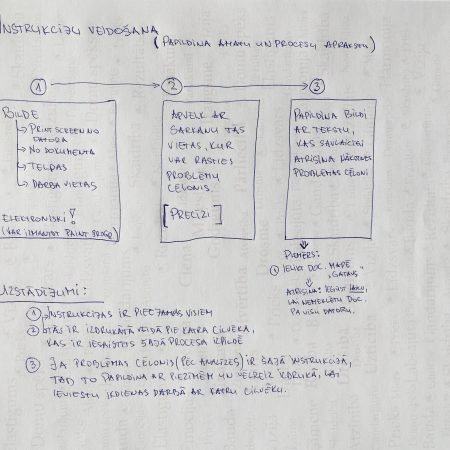 INSTRUKCIJU VEIDOŠANA
(PAPILDINA AMATU UN PROCESU APRAKSTU)
1 → 2 → 3
BILDE
↳ PRINT SCREEN NO
DATORA
↳ NO DOKUMENTA
↳ TELPAS
↳ DARBA VIETAS
ELEKTRONISKI!
(VAR IZMANTOT PAINT PROGR)
APVELK AR
SARKANU TĀS
VIETAS, KUR
VAR RASTIES
PROBLĒMU
CĒLONIS.
[PRECĪZI]
PAPILDINA BILDI
AR TEKSTU,
KAS SAUCAS
ATRISINA
PROBLĒMAS CĒLONI
PIEMĒRS:
1 IELIKT DOC. MAPĒ
"GATAVS"
→ ATRISINA: IEGŪST LAIKU,
LAI NEMEKLĒTU DOC.
PA VISU DATORU.
UZSTĀDĪJUMI:
1 INSTRUKCIJAS IR PIEEJAMAS VISIEM
2 TĀS IR IZDRUKĀTĀ VEIDĀ PIE KATRA CILVĒKA,
KAS IR IESAISTĪTS ŠAJĀ PROCESA IZPILDĒ
3 JA PROBLĒMAS CĒLONIS (PĒC ANALĪZES) IR ŠAJĀ INSTRUKCIJĀ,
TAD TO PAPILDINA AR PIEZĪMĒM UN VĒLREIZ IZDRUKĀ, LAI
IEVIESTU IKDIENAS DARBĀ AR KATRU CILVĒKU.